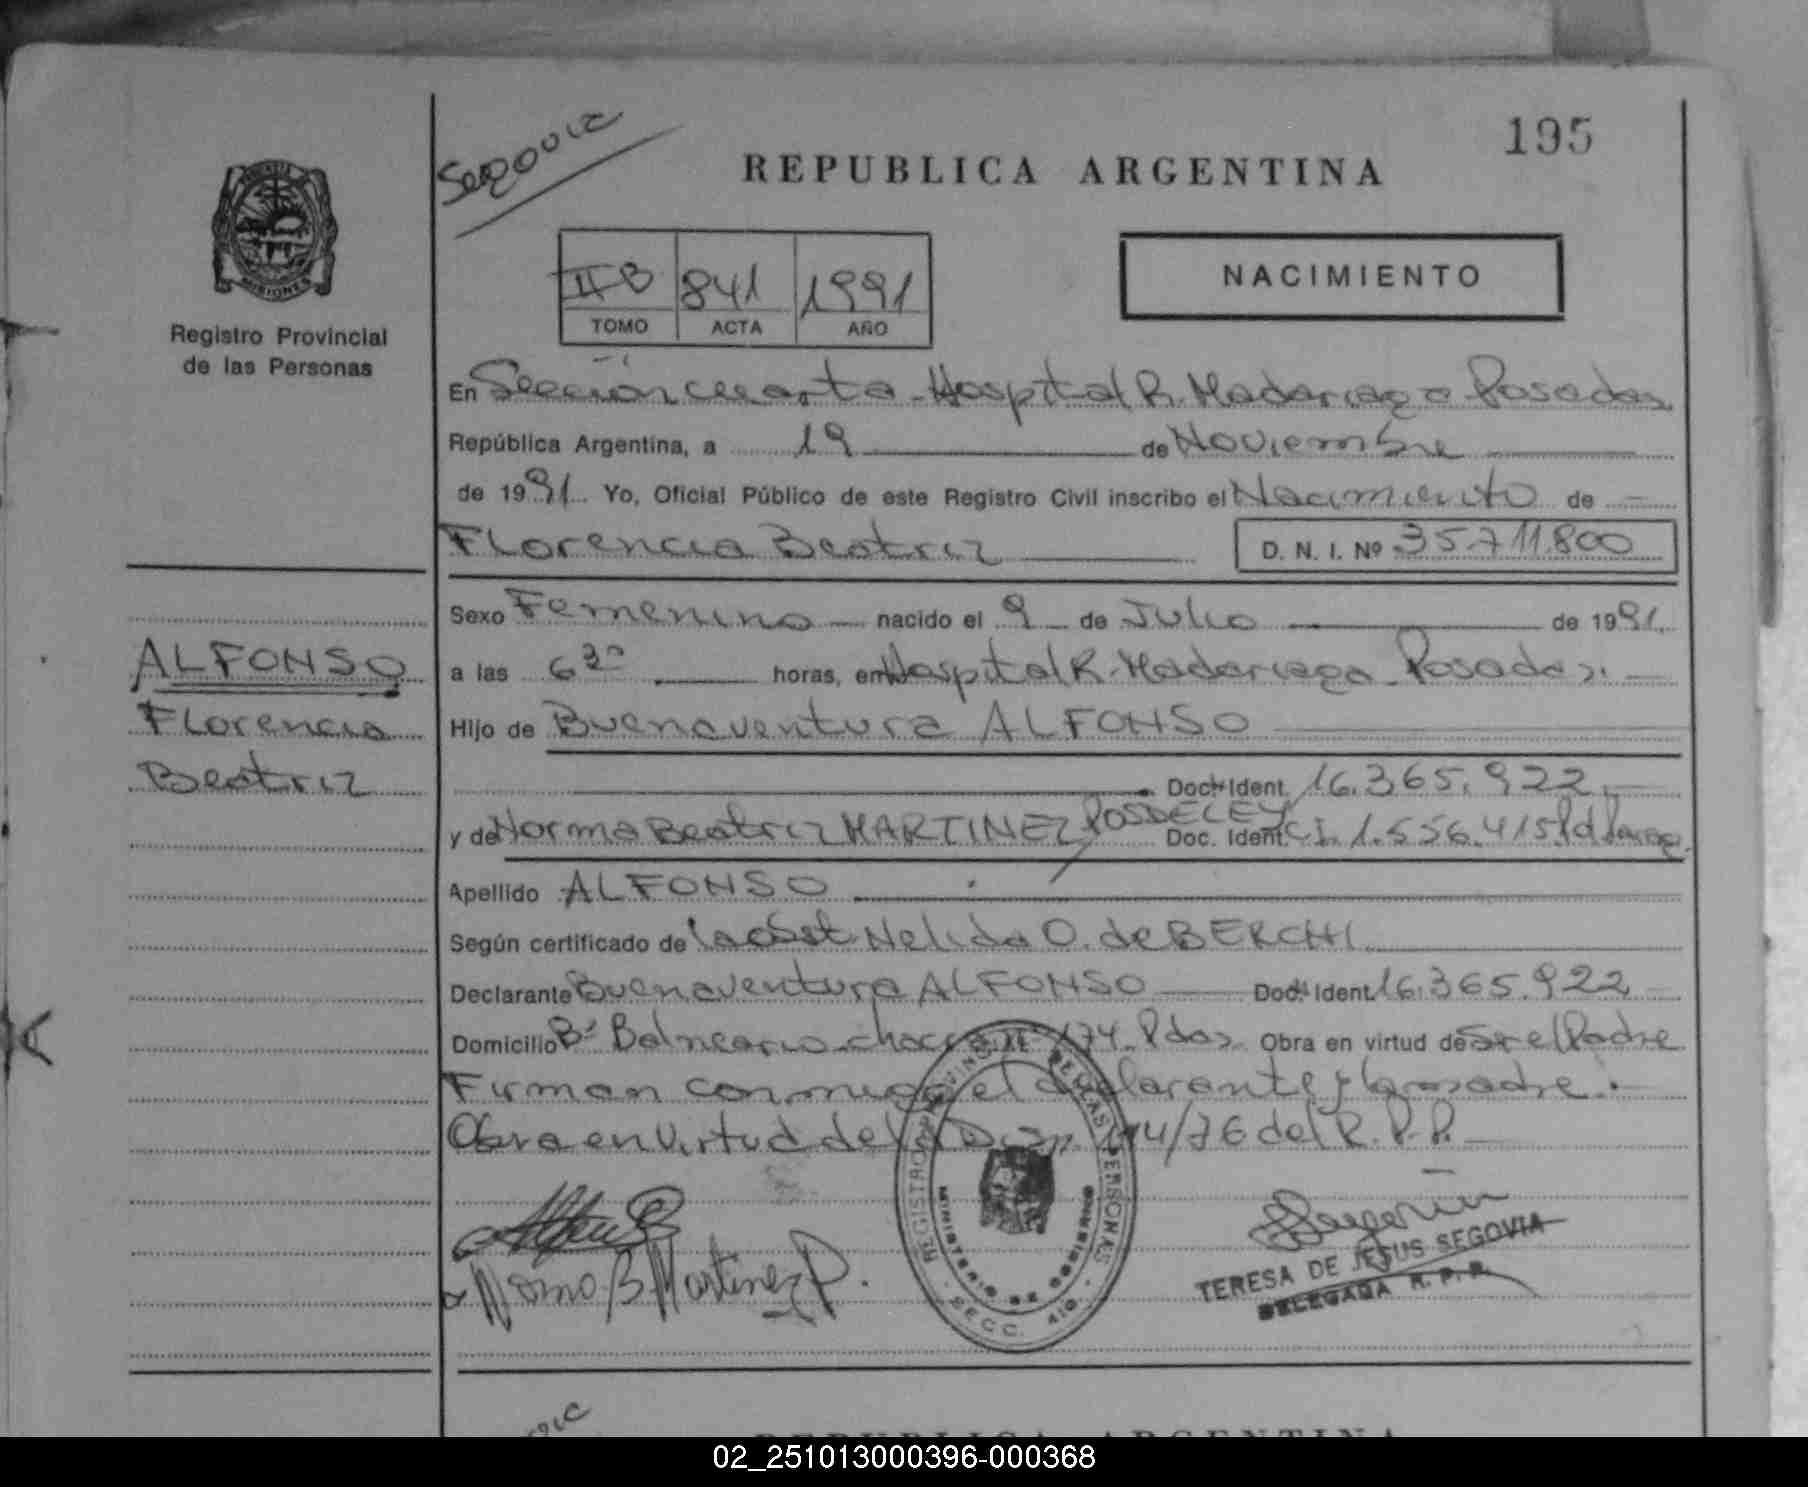 Segovia
195
REPUBLICA ARGENTINA
MISIONES
Registro Provincial
de las Personas
II B 841 1991
TOMO ACTA AÑO
NACIMIENTO
En Sección cuarta - Hospital R. Madariaga - Posadas
República Argentina, a 19 de Noviembre
de 1991 Yo, Oficial Público de este Registro Civil inscribo el Nacimiento de
Florencia Beatriz D. N. I. Nº 35.711.800
Sexo Femenino nacido el 9 de Julio de 1991.
a las 6 30 horas, en Hospital R. Madariaga - Posadas.
Hijo de Buenaventura ALFONSO
Doc. Ident. 16.365.922
y de Norma Beatriz MARTINEZ POSDELEY Doc. Ident. C.I. 1.556.415
Apellido ALFONSO
Según certificado de la obst. Nelida O. de BERCHI.
Declarante Buenaventura ALFONSO Doc. Ident. 16.365.922
Domicilio Bº Balneario 174 - Pdas. Obra en virtud de Ser el Padre
Firman conmigo el declarante y la madre.
Obra en virtud del /76 del R. P. P.
ALFONSO
Florencia
Beatriz
Norma B Martinez P.
REGISTRO PROVINCIAL DE LAS PERSONAS
MINISTERIO DE GOBIERNO
SECC. 4ta.
Segovia
TERESA DE JESUS SEGOVIA
DELEGADA R. P. P.
REPUBLICA ARGENTINA
02_251013000396-000368